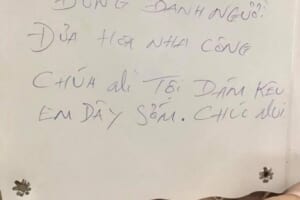 ĐỪNG ĐÁNH NGƯỜI.
ĐỨA HOA NHA CÔNG
CHÚA ơi TỘI DÁM KÊU
EM DẬY SỚM. CHÚC